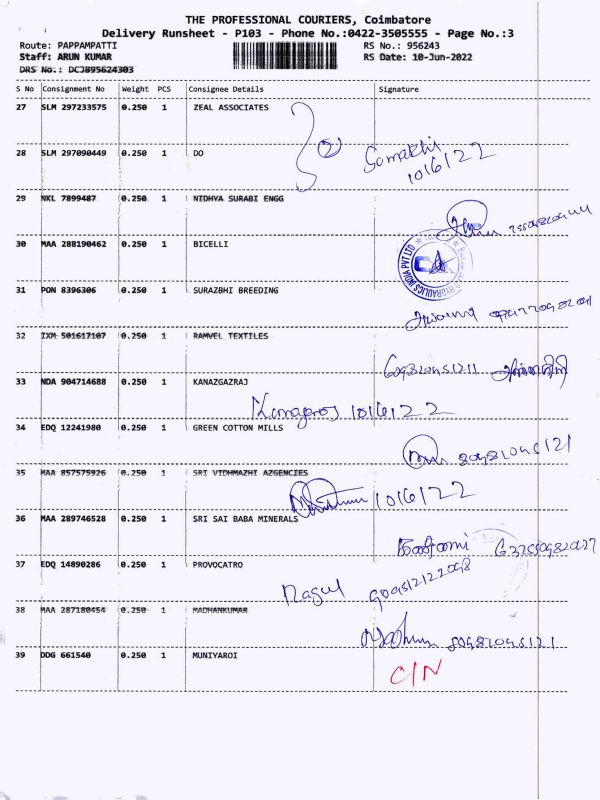 THE PROFESSIONAL COURIERS, Coimbatore
Delivery Runsheet - P103 - Phone No.:0422-3505555 - Page No.:3
Route: PAPPAMPATTI RS No.: 956243
Staff: ARUN KUMAR RS Date: 10-Jun-2022
DRS No.: DCJ895624303
S No Consignment No Weight PCS Consignee Details Signature
27 SLM 297233575 0.250 1 ZEAL ASSOCIATES
28 SLM 297090449 0.250 1 DO
10/6/22
29 NKL 7899487 0.250 1 NIDHYA SURABI ENGG
30 MAA 288190462 0.250 1 BICELLI
31 PON 8396306 0.250 1 SURAZBHI BREEDING
32 IXM 501617107 0.250 1 RAMVEL TEXTILES
33 NDA 904714688 0.250 1 KANAZGAZRAJ
10/6/22
34 EDQ 12241980 0.250 1 GREEN COTTON MILLS
35 MAA 857575926 0.250 1 SRI VIDHMAZHI AZGENCIES
10/6/22
36 MAA 289746528 0.250 1 SRI SAI BABA MINERALS
37 EDQ 14890286 0.250 1 PROVOCATRO
Nagul
38 MAA 287180454 0.250 1 MADHANKUMAR
39 DDG 661540 0.250 1 MUNIYAROI
C/N